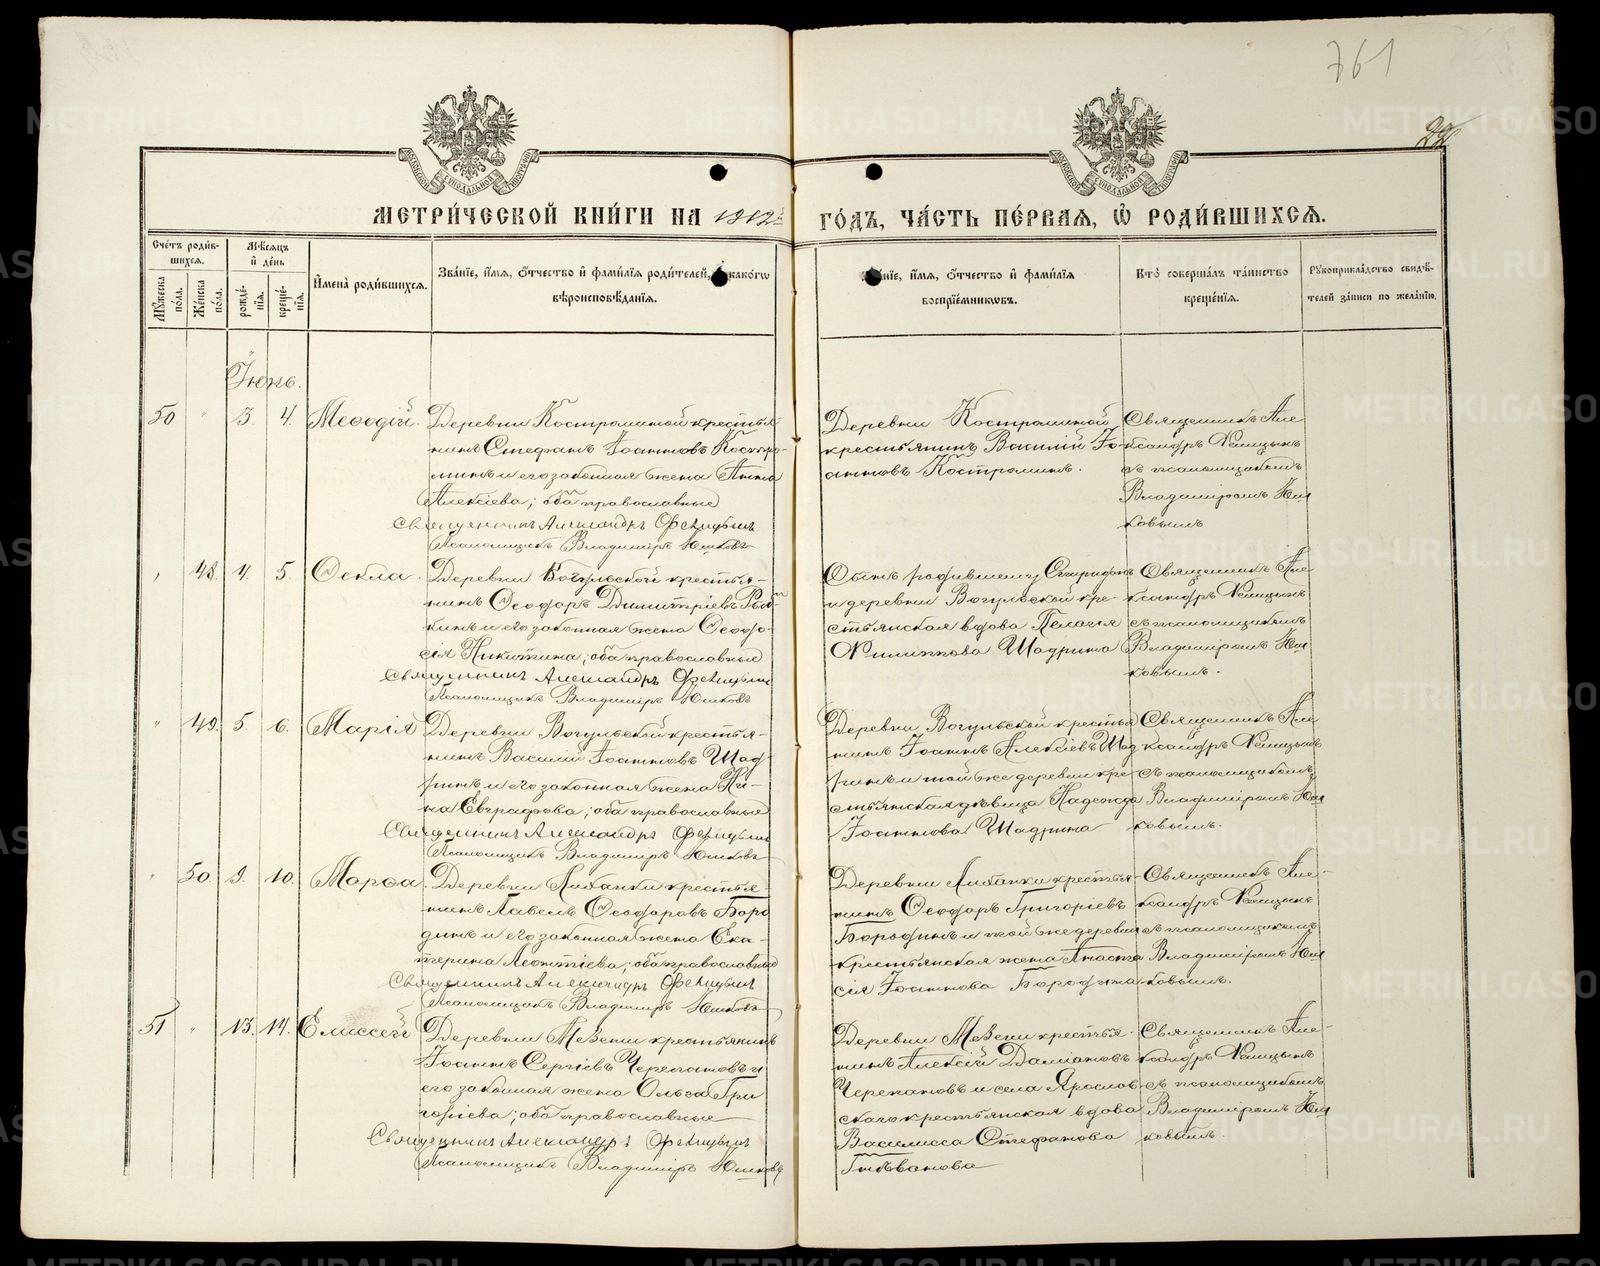 761
22
МЕТРИ́ЧЕСКОЙ КНИ́ГИ НА 1912 ГО́ДЪ, ЧА́СТЬ ПЕ́РВАЯ, Ѽ РОДИ́ВШИХСЯ.
Сче́тъ роди́вшихся.
Мѣ́сяцъ и҆ де́нь
Мꙋ́жеска по́ла.
Же́нска по́ла.
рожде́нїя.
креще́нїя.
И҆мена̀ роди́вшихся.
Зва́нїе, и҆́мя, ѻ҆́тчество и҆ фами́лїя роди́телей, и҆ како́гѡ вѣроисповѣ́данїя.
Зва́нїе, и҆́мя, ѻ҆́тчество и҆ фами́лїя воспрїе́мникѡвъ.
Кто̀ соверша́лъ та́инство креще́нїя.
Рꙋкоприкла́дство свидѣ́телей за́писи по жела́нїю.
Іюнь.
50 " 3. 4. Меѳодій.
Деревни Костроминой крестья-
нинъ Стефанъ Іоанновъ Костро-
минъ и его законная жена Анна
Алексіева; оба православные
Священникъ Александръ
Псаломщикъ Владиміръ Юшковъ
Деревни Костроминой
крестьянинъ Василій Іо-
анновъ Костроминъ.
Священникъ Але-
ксандръ
съ псаломщикомъ
Владиміромъ Юш
ковымъ
" 48. 4. 5. Ѳекла.
Деревни Вогульской крестья-
нинъ Ѳеодоръ Димитріевъ
и его законная жена Ѳеодо-
сія Никитина; оба православные
Священникъ Александръ
Псаломщикъ Владиміръ Юшковъ
и деревни Вогульской кре-
стьянская вдова Пелагія
Филиппова Шадрина
Священникъ Але-
ксандръ
съ псаломщикомъ
Владиміромъ Юш
ковымъ.
" 49. 5 6. Марія
Деревни Вогульской крестья-
нинъ Василій Іоанновъ Шад-
ринъ и его законная жена Ни-
на Евграфова; оба православные
Священникъ Александръ
Псаломщикъ Владиміръ Юшковъ
Деревни Вогульской крестья
нинъ Іоаннъ Алексіевъ Шад
ринъ и той же деревни кре-
стьянская дѣвица Надежда
Іоаннова Шадрина
Священникъ Але
ксандръ
съ псаломщикомъ
Владиміромъ Юш
ковымъ.
" 50. 9. 10. Марѳа.
Деревни крестья-
нинъ Павелъ Ѳеодоровъ Боро
динъ и его законная жена Ека-
терина Леонтіева; оба православные
Священникъ Александръ
Псаломщикъ Владиміръ Юшковъ
Деревни крестья-
нинъ Ѳеодоръ Григоріевъ
Бородинъ и той же деревни
крестьянская жена Анаста
сія Іоаннова Бородина
Священникъ Але-
ксандръ
съ псаломщикомъ
Владиміромъ Юш
ковымъ.
51 " 13. 14. Елиссей
Деревни Мезени крестьянинъ
Іоаннъ Сергіевъ Черепановъ и
его законная жена Ольга Гри
горіева; оба православные
Священникъ Александръ
Псаломщикъ Владиміръ Юшковъ
Деревни Мезени крестья-
нинъ Алексій Даміановъ
Черепановъ и села Ярослав-
скаго крестьянская вдова
Василисса Стефанова
Священникъ Але-
ксандръ
съ псаломщикомъ
Владиміромъ Юш
ковымъ.
METRIKI.GASO-URAL.RU